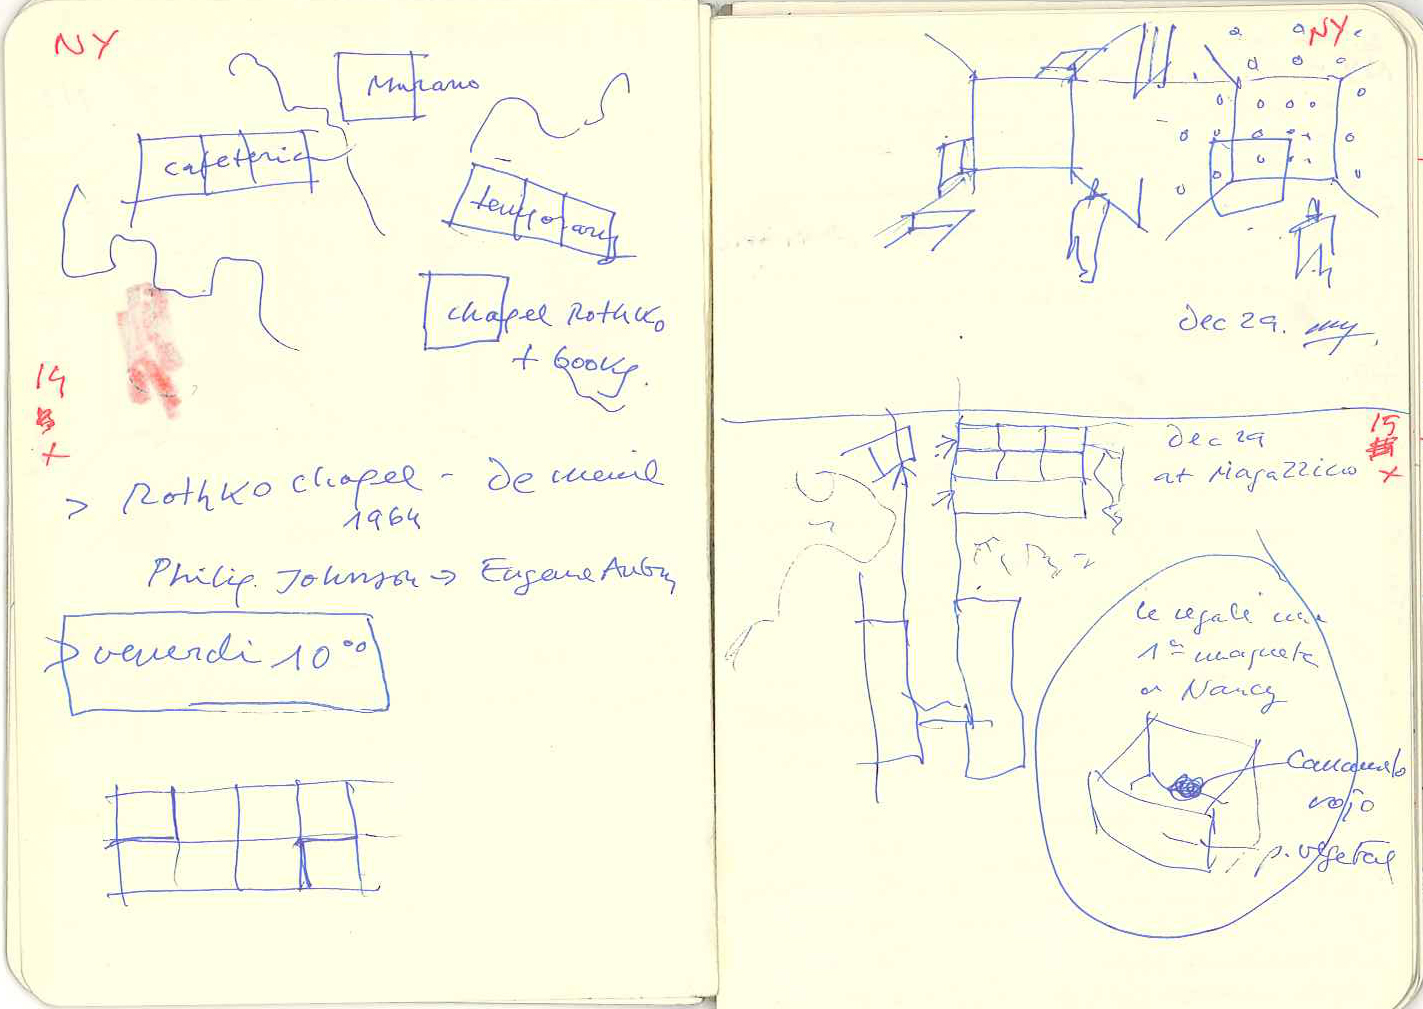 NY
Murano
cafeteria
temporary
chapel Rothko
+ books.
14
x
> Rothko chapel - De Menil
1964
Philip. Johnson -> Eugene Aubry
> venerdi 10⁰⁰
NY
Dec 29.
15
x
Dec 29
at Magazzino
le regalé una
1ª maqueta
a Nancy
Caramelo
rojo
p. vegetal